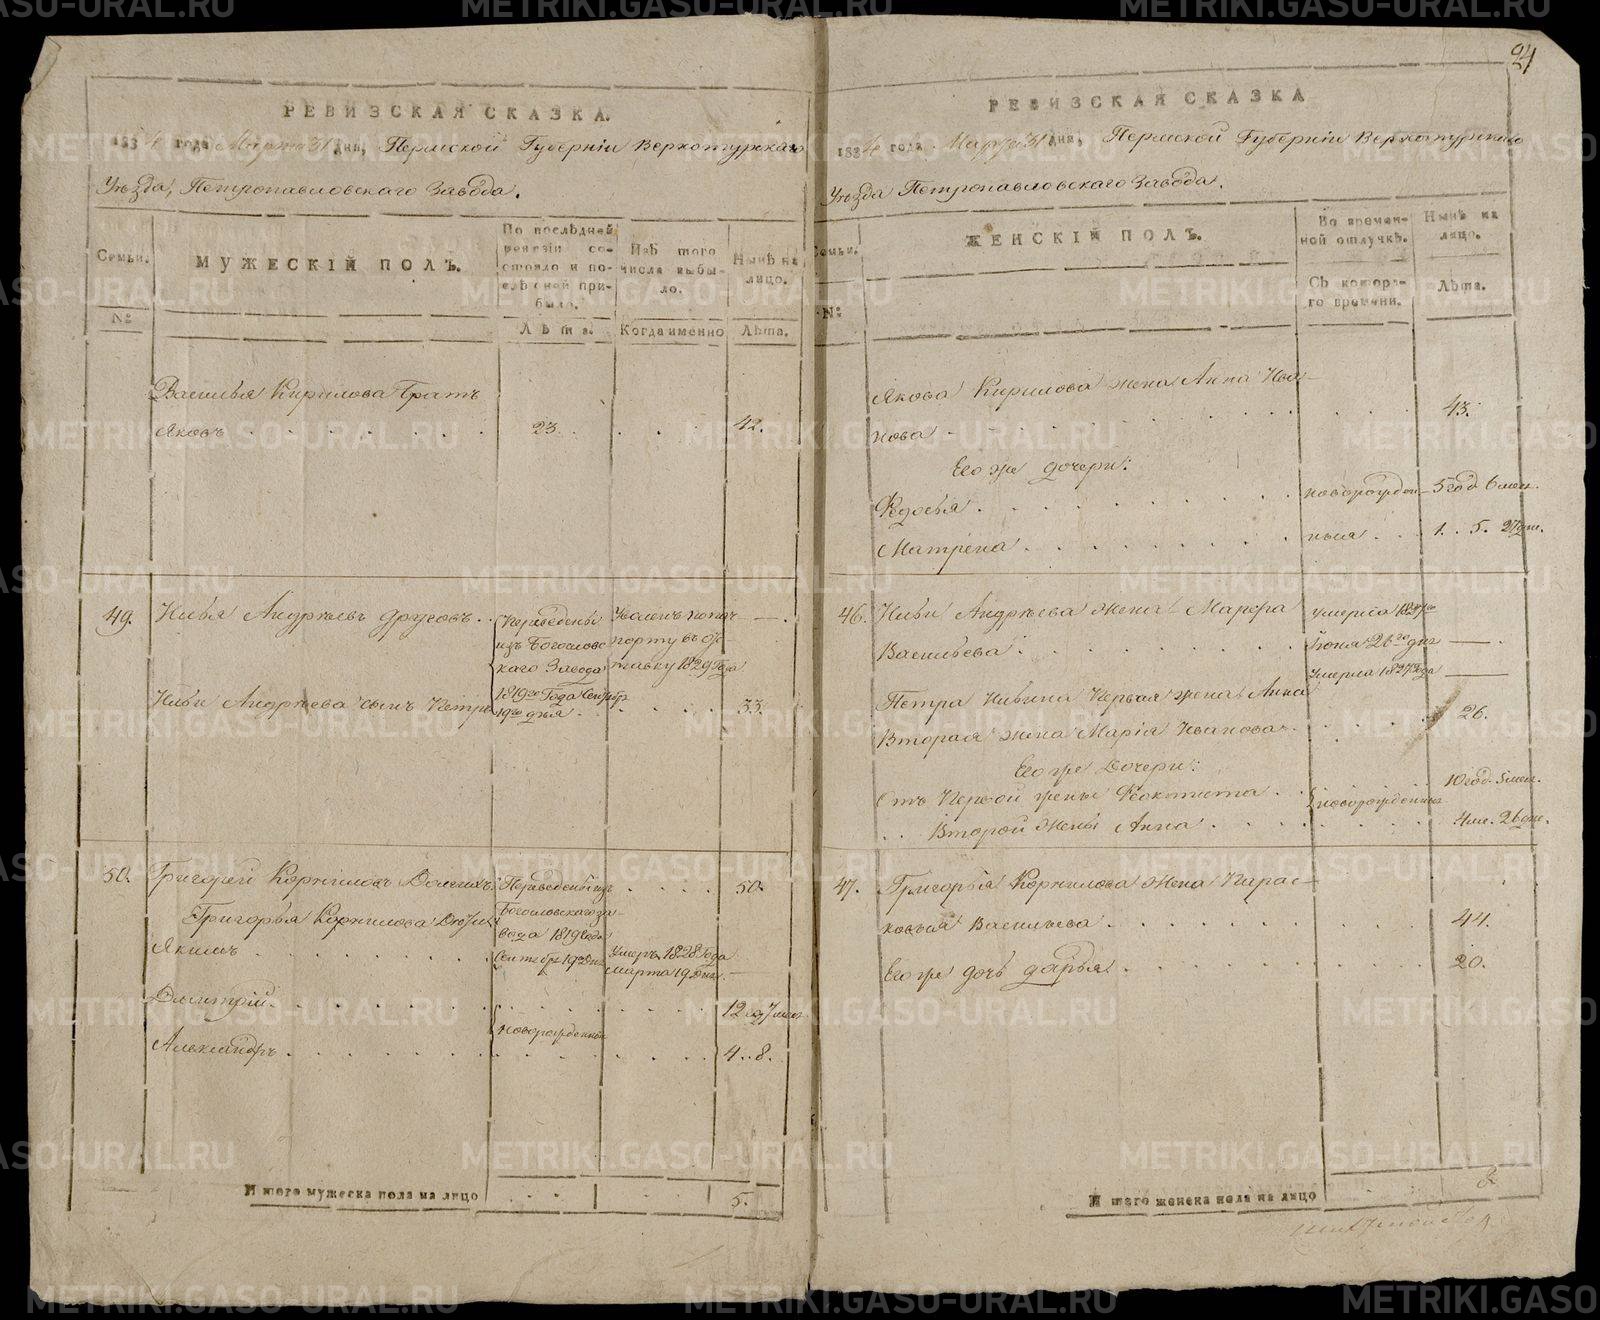 РЕВИЗСКАЯ СКАЗКА.
1834 года Марта 31 дня, Пермской Губерніи Верхотурскаго
Уѣзда, Петропавловскаго Завода.
Семьи.
№
МУЖЕСКІЙ ПОЛЪ.
По послѣдней ревизіи состояло и послѣ оной прибыло.
Лѣта.
Изъ того числа выбыло.
Когда именно
Нынѣ на лицо.
Лѣта.
Василья Кирилова братъ
Яковъ 23. 42.
49. Илья Андрѣевъ
Переведены изъ Богословскаго Завода 1819го Года Сентября 19го дня
Уволенъ по паспорту въ отставку 1829 Года
Ильи Андрѣева сынъ Петръ 33.
50. Григорей Корниловъ
Переведены изъ Богословскаго завода 1819 года Сентября 19 дня
50.
Григорья Корнилова дѣти
Якимъ
Умеръ 1828 Года марта 19 дня
Дмитрій 12 7 мес
новорожденные
Александръ 4..8.
Итого мужеска пола на лицо 5.
24
РЕВИЗСКАЯ СКАЗКА
1834 года Марта 31 дня, Пермской Губерніи Верхотурскаго
Уѣзда Петропавловскаго Завода.
Семьи.
№
ЖЕНСКІЙ ПОЛЪ.
Во временной отлучкѣ.
Съ котораго времени.
Нынѣ на лицо.
Лѣта.
Якова Кирилова жена Анна Ива-
нова 43.
Его же дочери:
новорожден- 5 год 6 мес.
Матрена ныя 1. 5. 27 дне.
46. Ильи Андрѣева жена Марфа
Васильева
умерла
Іюня 26го дня
Умерла 1827 Года
Петра Ильина первая жена Анна
Вторая жена Марія Иванова 26.
Его же Дочери:
Отъ Первой жены Феоктиста 10 год. 5 мес.
новорожденные
Второй жены Анна 4 ме. 26 дне.
47. Григорья Корнилова жена Парас-
ковья Васильева 44.
Его же дочь Дарья 20.
Итого женска пола на лицо 8.
METRIKI.GASO-URAL.RU